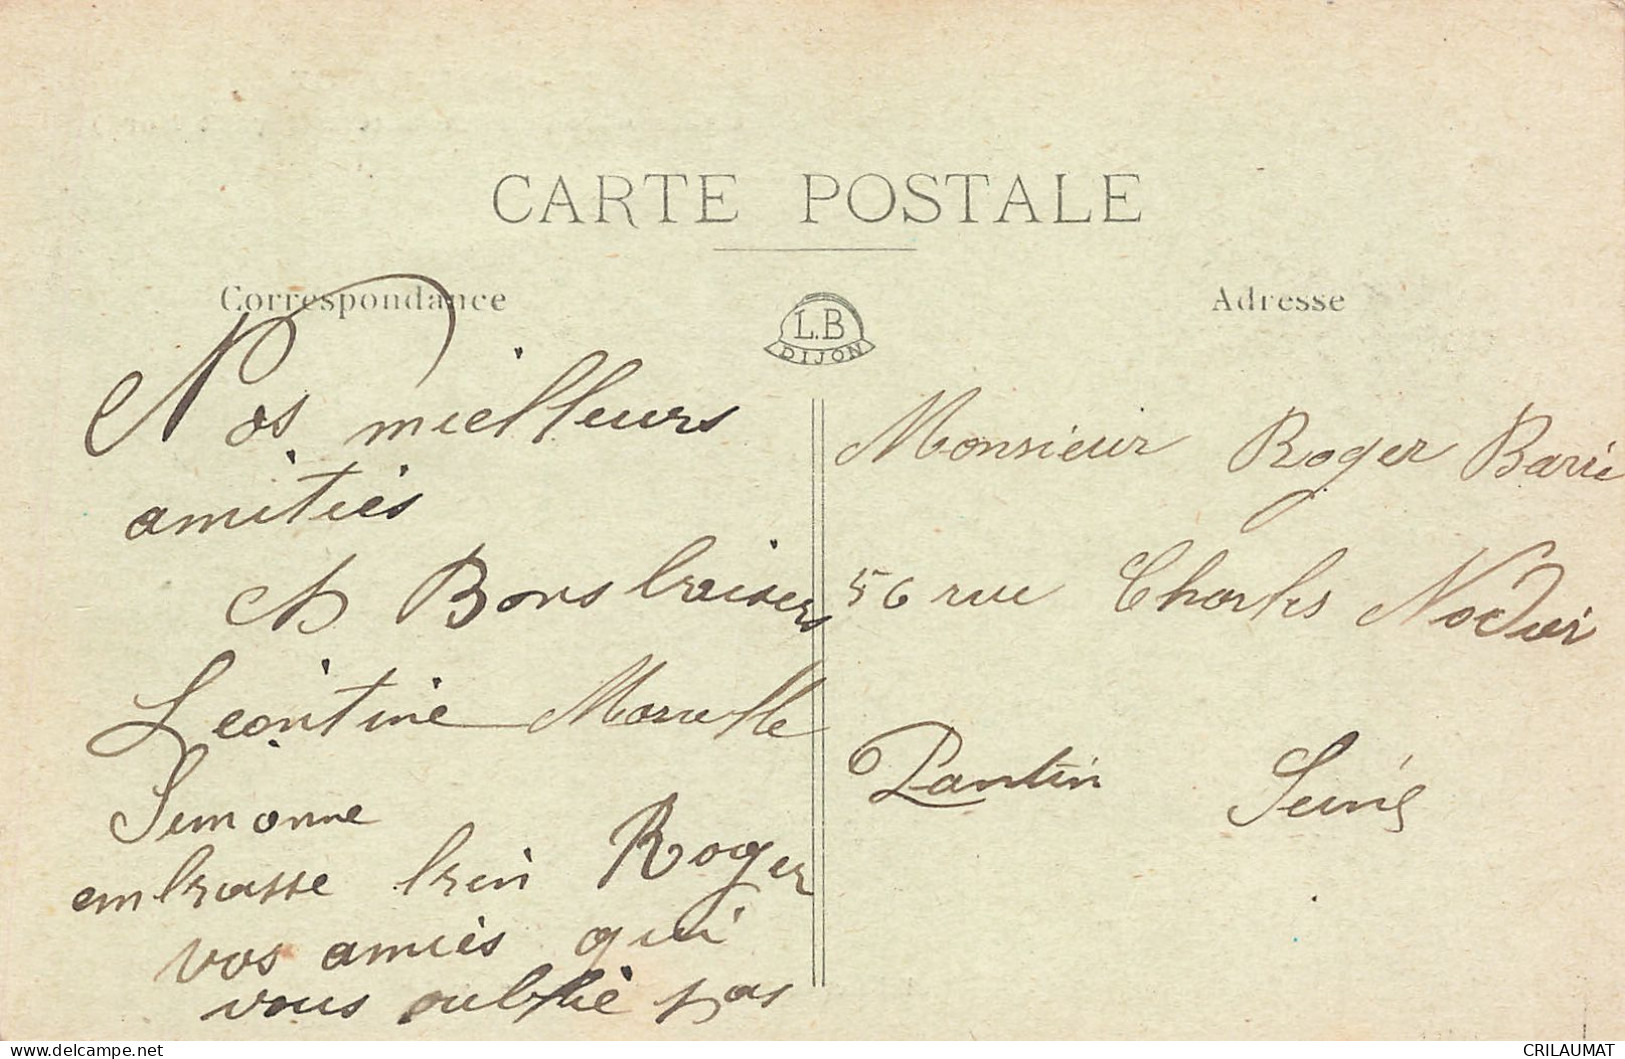 CARTE POSTALE
Correspondance
L.B
DIJON
Adresse
Nos meilleurs
amitiés
et Bons baisers
Leontine Marcelle
Simonne
embrasse bien Roger
vos amies qui
vous oublie pas
Monsieur Roger Barré
56 rue Charles Nodier
Pantin Seine
delcampe.net
CRILAUMAT